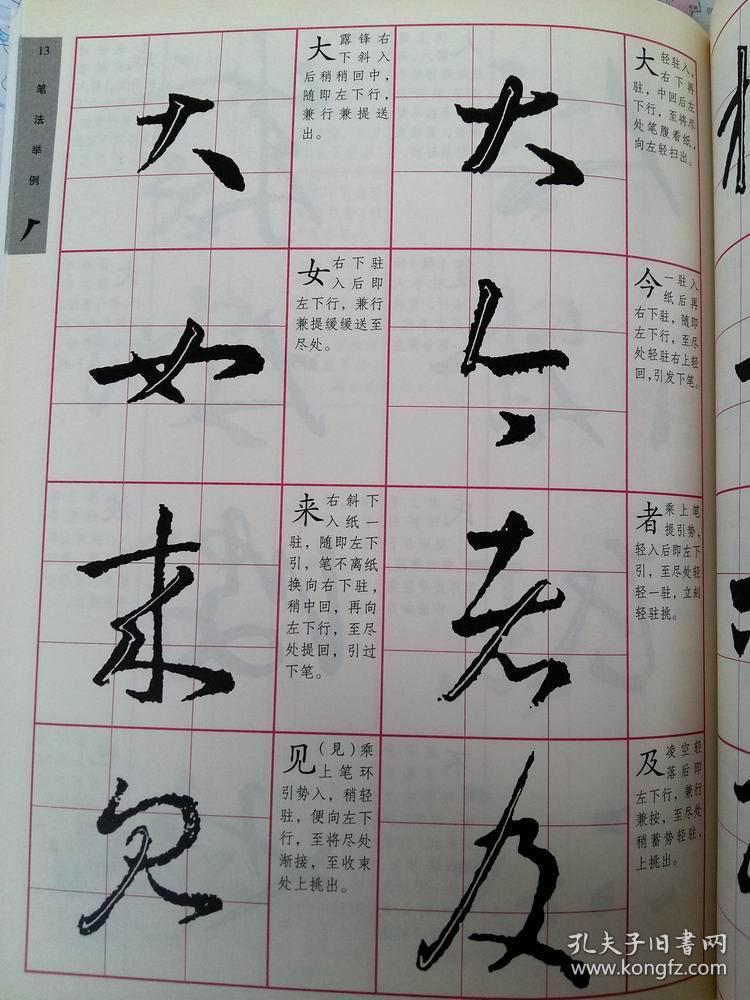 13
笔法举例
大
露锋右
下斜入
后稍稍回中，
随即左下行，
兼行兼提送
出。
大
轻驻入，
右下再
驻，中回后左
下行，至将尽
处笔腹着纸，
向左轻扫出。
女
右下驻
入后即
左下行，兼行
兼提缓缓送至
尽处。
今
一驻入
纸后再
右下驻，随即
左下行，至尽
处轻驻右上轻
回，引发下笔。
来
右斜下
入纸一
驻，随即左下
引，笔不离纸
换向右下驻，
稍中回，再向
左下行，至尽
处提回，引过
下笔。
者
乘上笔
提引势，
轻入后即左下
引，至尽处轻
轻一驻，立刻
轻驻挑。
见
（見）乘
上笔环
引势入，稍轻
驻，便向左下
行，至将尽处
渐接，至收束
处上挑出。
及
凌空轻
落后即
左下行，兼行
兼按，至尽处
稍蓄势轻驻，
上挑出。
大
大
女
今
来
者
見
及
孔夫子旧书网
www.kongfz.com